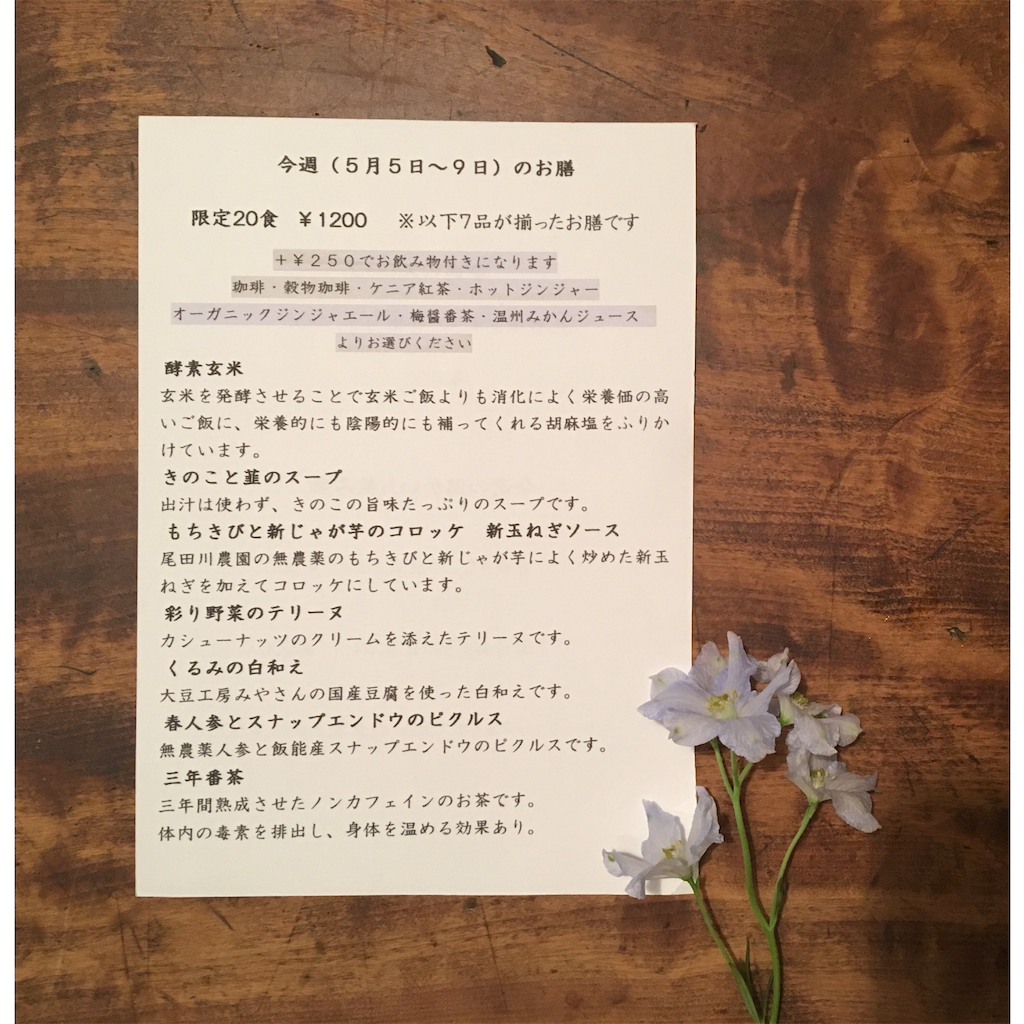 今週（５月５日～９日）のお膳
限定20食　￥1200　※以下7品が揃ったお膳です
＋￥２５０でお飲み物付きになります
珈琲・穀物珈琲・ケニア紅茶・ホットジンジャー
オーガニックジンジャエール・梅醤番茶・温州みかんジュース
よりお選びください
酵素玄米
玄米を発酵させることで玄米ご飯よりも消化によく栄養価の高
いご飯に、栄養的にも陰陽的にも補ってくれる胡麻塩をふりか
けています。
きのこと韮のスープ
出汁は使わず、きのこの旨味たっぷりのスープです。
もちきびと新じゃが芋のコロッケ　新玉ねぎソース
尾田川農園の無農薬のもちきびと新じゃが芋によく炒めた新玉
ねぎを加えてコロッケにしています。
彩り野菜のテリーヌ
カシューナッツのクリームを添えたテリーヌです。
くるみの白和え
大豆工房みやさんの国産豆腐を使った白和えです。
春人参とスナップエンドウのピクルス
無農薬人参と飯能産スナップエンドウのピクルスです。
三年番茶
三年間熟成させたノンカフェインのお茶です。
体内の毒素を排出し、身体を温める効果あり。